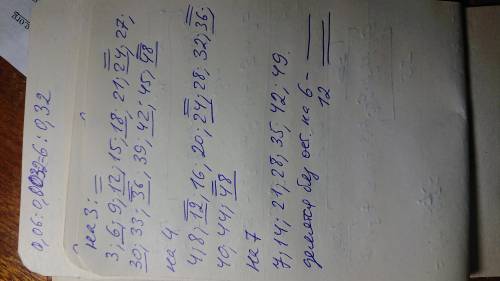 0,06:0,0032=6:0,32
на 3:
3; 6; 9; 12; 15; 18; 21; 24; 27;
30; 33; 36; 39; 42; 45; 48
на 4
4; 8; 12; 16; 20; 24; 28; 32; 36;
40; 44; 48
на 7
7; 14; 21; 28; 35; 42; 49.
делятся без ост. на 6 –
12